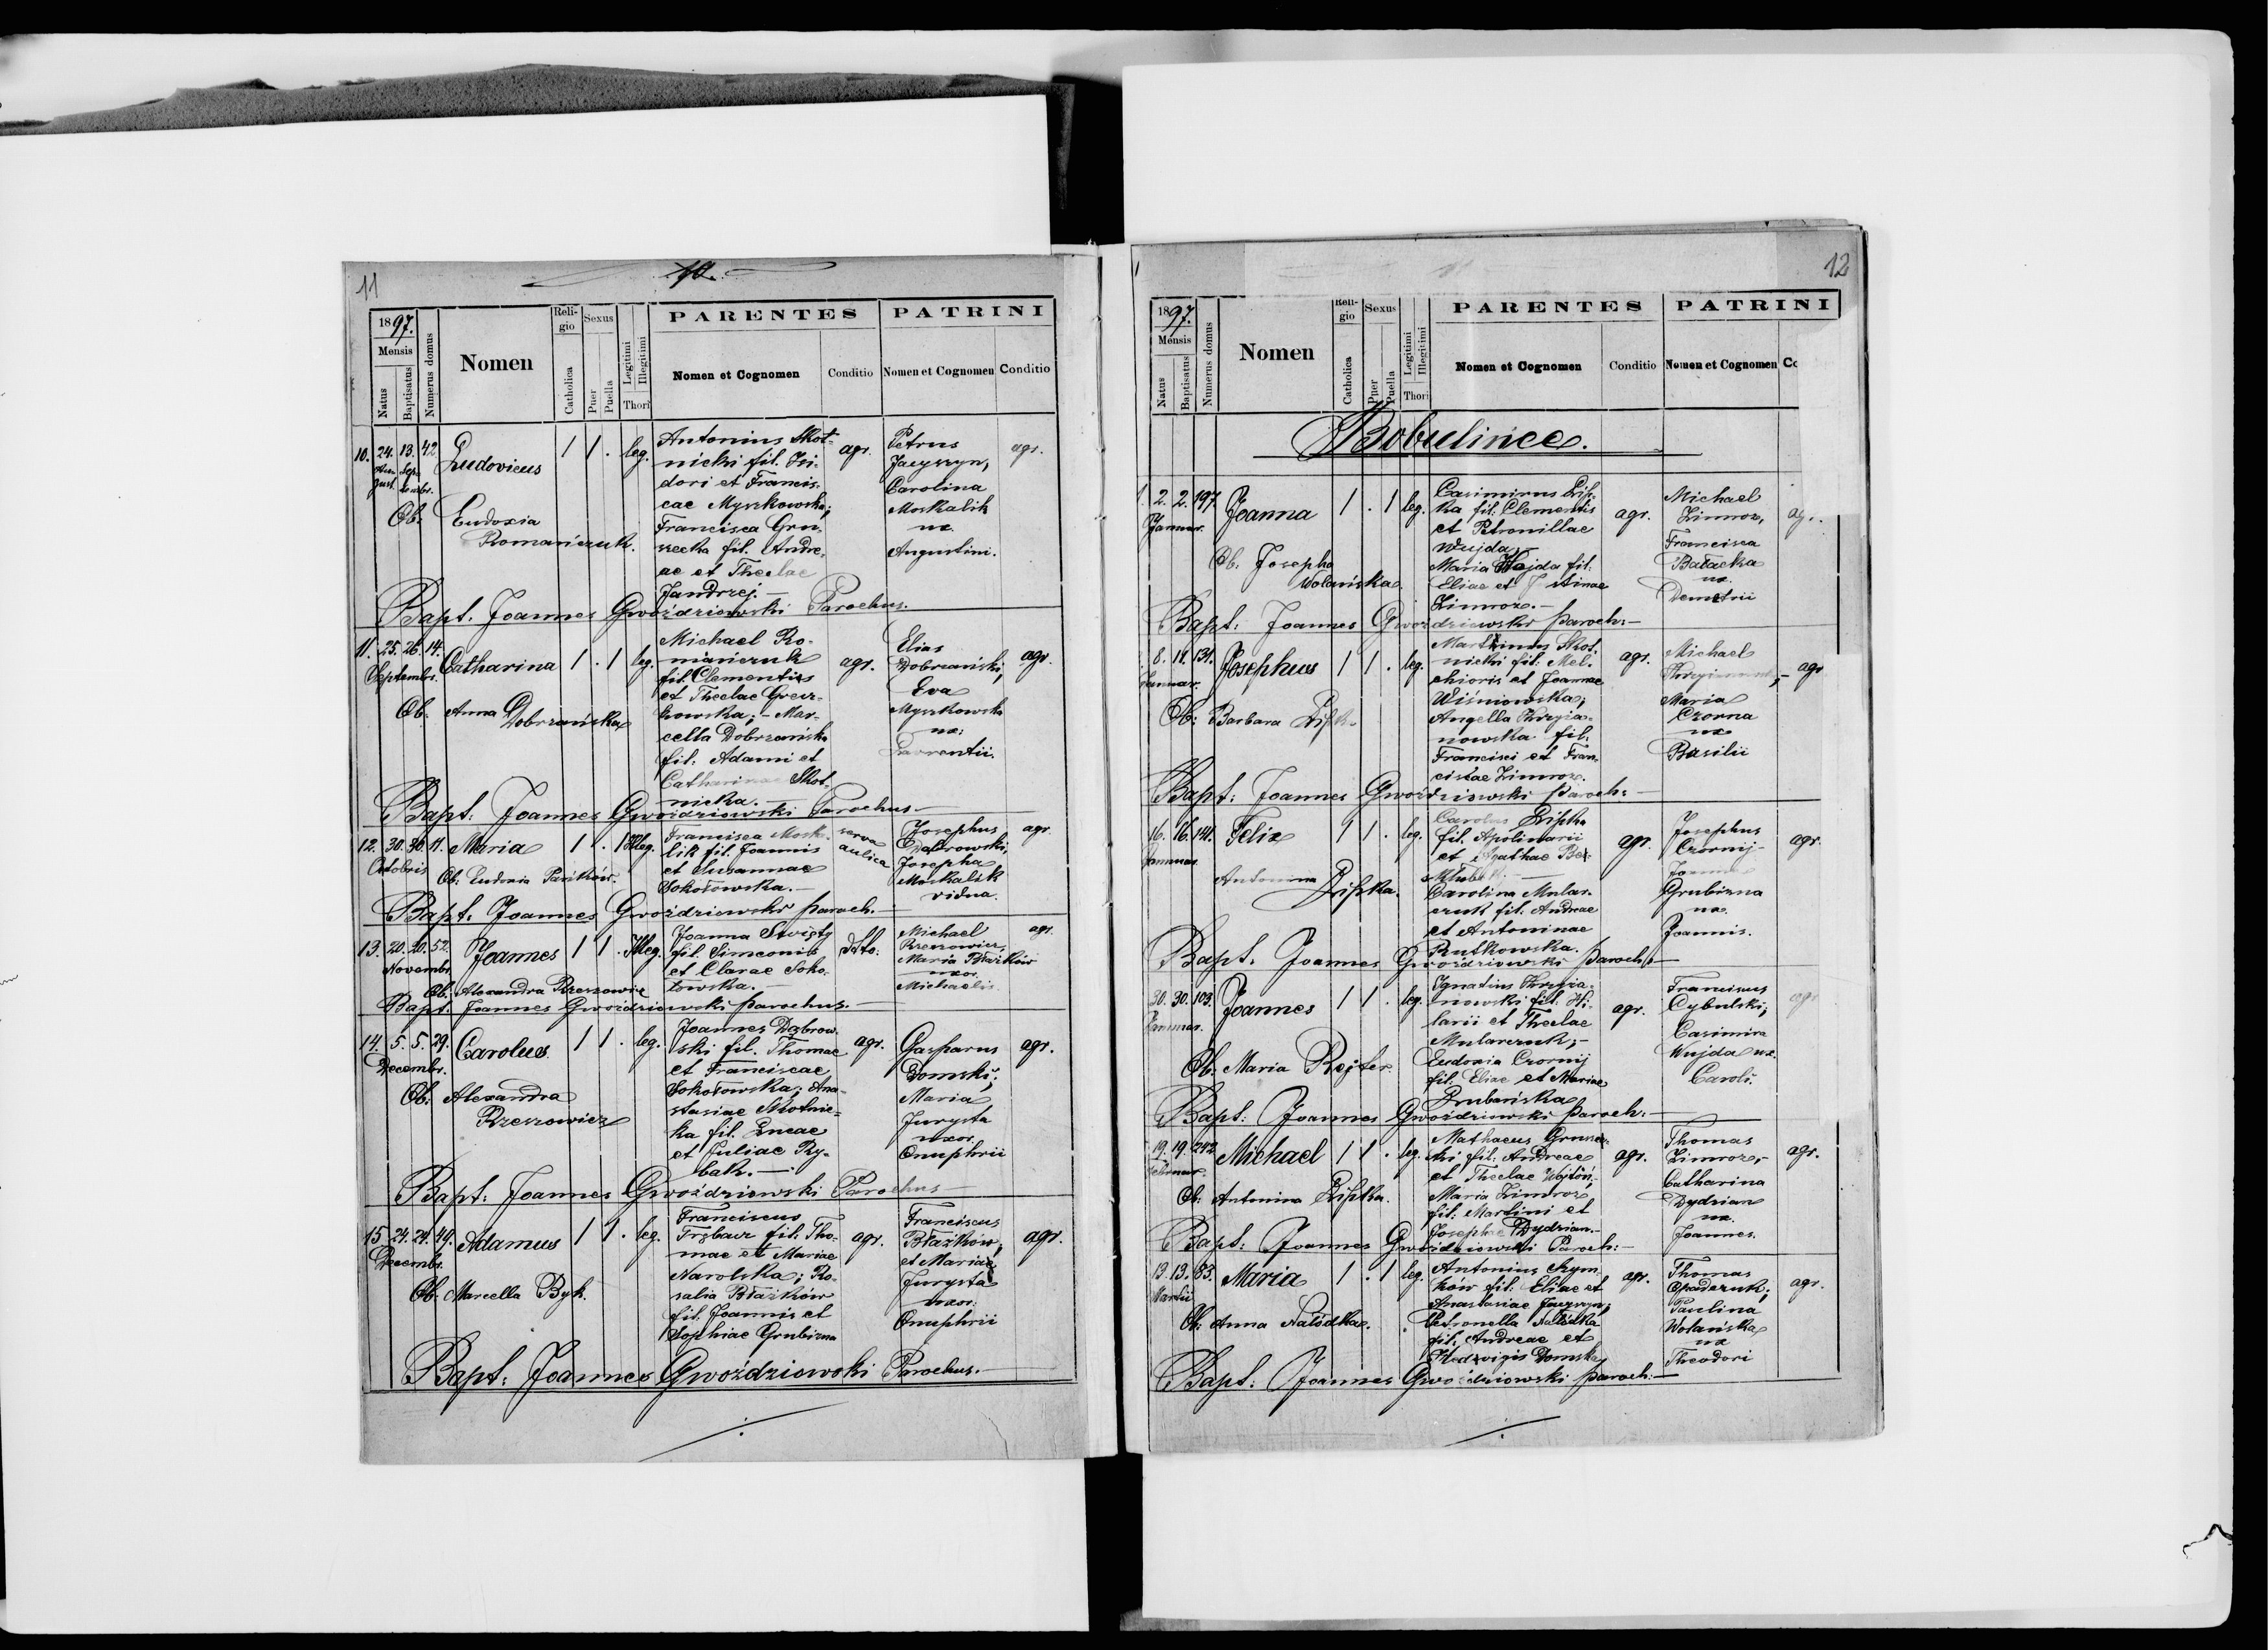 11
10.
1897.
Mensis
Natus
Baptisatus
Numerus domus
Nomen
Religio
Catholica
Sexus
Puer
Puella
Legitimi
Illegitimi
Thori
PARENTES
Nomen et Cognomen
Conditio
PATRINI
Nomen et Cognomen
Conditio
10. 24. 13. 42. Ludovicus 1 1 . leg.
August. Septembr.
Ob. Eudoxia
Romańczuk.
Antonius Skot-
nicki fil. Isi-
dori et Francis-
cae Myszkowska;
Francisca Gru-
szecka fil. Andre-
ae et Theclae
Jandrzej. —
agr.
Petrus
Jaczyszyn,
Carolina
Moskalik
ux.
Augustini.
agr.
Bapt. Joannes Gwoździowski Parochus.
11. 25. 26. 14. Catharina 1 . 1 leg.
Septembr.
Ob. Anna Dobrzańska
Michael Ro-
mańczuk
fil. Clementis
et Theclae
; - Mar-
cella Dobrzańska
fil. Adami et
Catharinae Skot-
nicka.
agr.
Elias
Dobrzański,
Eva
Myszkowska
ux:
Laurentii.
agr.
Bapt: Joannes Gwoździowski Parochus —
12. 30. 30. 11. Maria 1 . 1 Illeg.
Octobris
Ob: Eudoxia
Francisca Moska-
lik fil. Joannis
et Susannae
Sokołowska. —
serva
aulica
Josephus
Dąbrowski,
Josepha
Moskalik
vidua.
agr.
Bapt. Joannes Gwoździowski paroch. —
13. 20. 20. 52. Joannes 1 1 . Illeg.
Novembr.
Ob. Alexandra Rzeszowicz
Joanna Swięty
fil. Simeonis
et Clarae Soko-
łowska. —
dtto:
Michael
Rzeszowicz,
Maria Błażków
uxor.
Michaelis.
agr.
Bapt. Joannes Gwoździowski parochus. —
14. 5. 5. 29. Carolus 1 1 . leg.
Decembr.
Ob: Alexandra
Rzeszowicz
Joannes Dąbrow-
ski fil. Thomae
et Franciscae
Sokołowska; Ana-
stasiae Skotnic-
ka fil. Lucae
et Juliae Ry-
bak. —
agr.
Gasparus
Domski;
Maria
Jurysta
uxor.
Onuphrii
agr.
Bapt: Joannes Gwoździowski Parochus —
15. 24. 24. 49. Adamus 1 1 . leg.
Decembr.
Ob: Marcella Byk.
Franciscus
fil. Tho-
mae et Mariae
Narolska; Ro-
salia Błażków
fil. Joannis et
Sophiae Grubizna
agr.
Franciscus
Błażków,
et Mariae
Jurysta
uxor:
Onuphrii
agr.
Bapt: Joannes Gwoździowski Parochus. —
12
1897.
Mensis
Natus
Baptisatus
Numerus domus
Nomen
Religio
Catholica
Sexus
Puer
Puella
Legitimi
Illegitimi
Thori
PARENTES
Nomen et Cognomen
Conditio
PATRINI
Nomen et Cognomen
Bobulince.
1. 2. 2. 197. Joanna 1 . 1 leg.
Januar.
Ob. Josepha
Wołańska.
Casimirus Lip-
ka fil. Clementis
et Petronillae
Wujda,
Maria Wojda fil.
Eliae et
Zimroz. —
agr.
Michael
Zimroz,
Francisca
Bałacka
ux.
Demetrii
Bapt: Joannes Gwoździowski paroch: —
8. 11. 131. Josephus 1 1 . leg.
Januar.
Ob: Barbara
Martinus Skot-
nicki fil. Mel-
chioris et Joannae
Wiśniowska;
Angella
nowska fil.
Francisci et Fran-
ciscae Zimroz.
agr.
Michael
Maria
Czorna
ux
Basilii
agr
Bapt: Joannes Gwoździowski paroch: —
16. 16. 141. Felix 1 1 . leg.
Januar.
Antonina Lipka.
Carolus Lipka
fil. Apolinarii
et Agathae
Carolina Mular-
czuk fil. Andreae
et Antoninae
Rutkowska.
agr.
Josephus
Czornij -
Joanna
Grubizna
ux.
Joannis.
agr.
Bapt. Joannes Gwoździowski paroch. —
30. 30. 103. Joannes 1 1 . leg.
Januar.
Ob: Maria Rejter.
Ignatius
nowski fil. Hi-
larii et Theclae
Mularczuk; -
Eudoxia Czornij
fil. Eliae et Mariae
agr.
Franciscus
Cybulski;
Casimira
Wujda ux.
Caroli.
agr
Bapt: Joannes Gwoździowski paroch: —
19. 19. 242. Michael 1 1 . leg.
Februar.
Ob: Antonina Lipka.
Mathaeus Grusze-
ki fil. Andreae
et Theclae
Maria Zimroz
fil. Martini et
Josephae Dydzian. —
agr.
Thomas
Zimroz, -
Catharina
Dydzian
ux.
Joannes.
agr.
Bapt: Joannes Gwoździowski Paroch: —
13. 13. 83. Maria 1 . 1 leg.
Martii
Ob: Anna Nałodka.
Antonius Szym-
ków fil. Eliae et
Anastasiae
Petronella Nałodka
fil. Andreae et
Hedvigis Domska
agr.
Thomas
Paulina
Wołańska
ux
Theodori
agr.
Bapt: Joannes Gwoździowski paroch: —